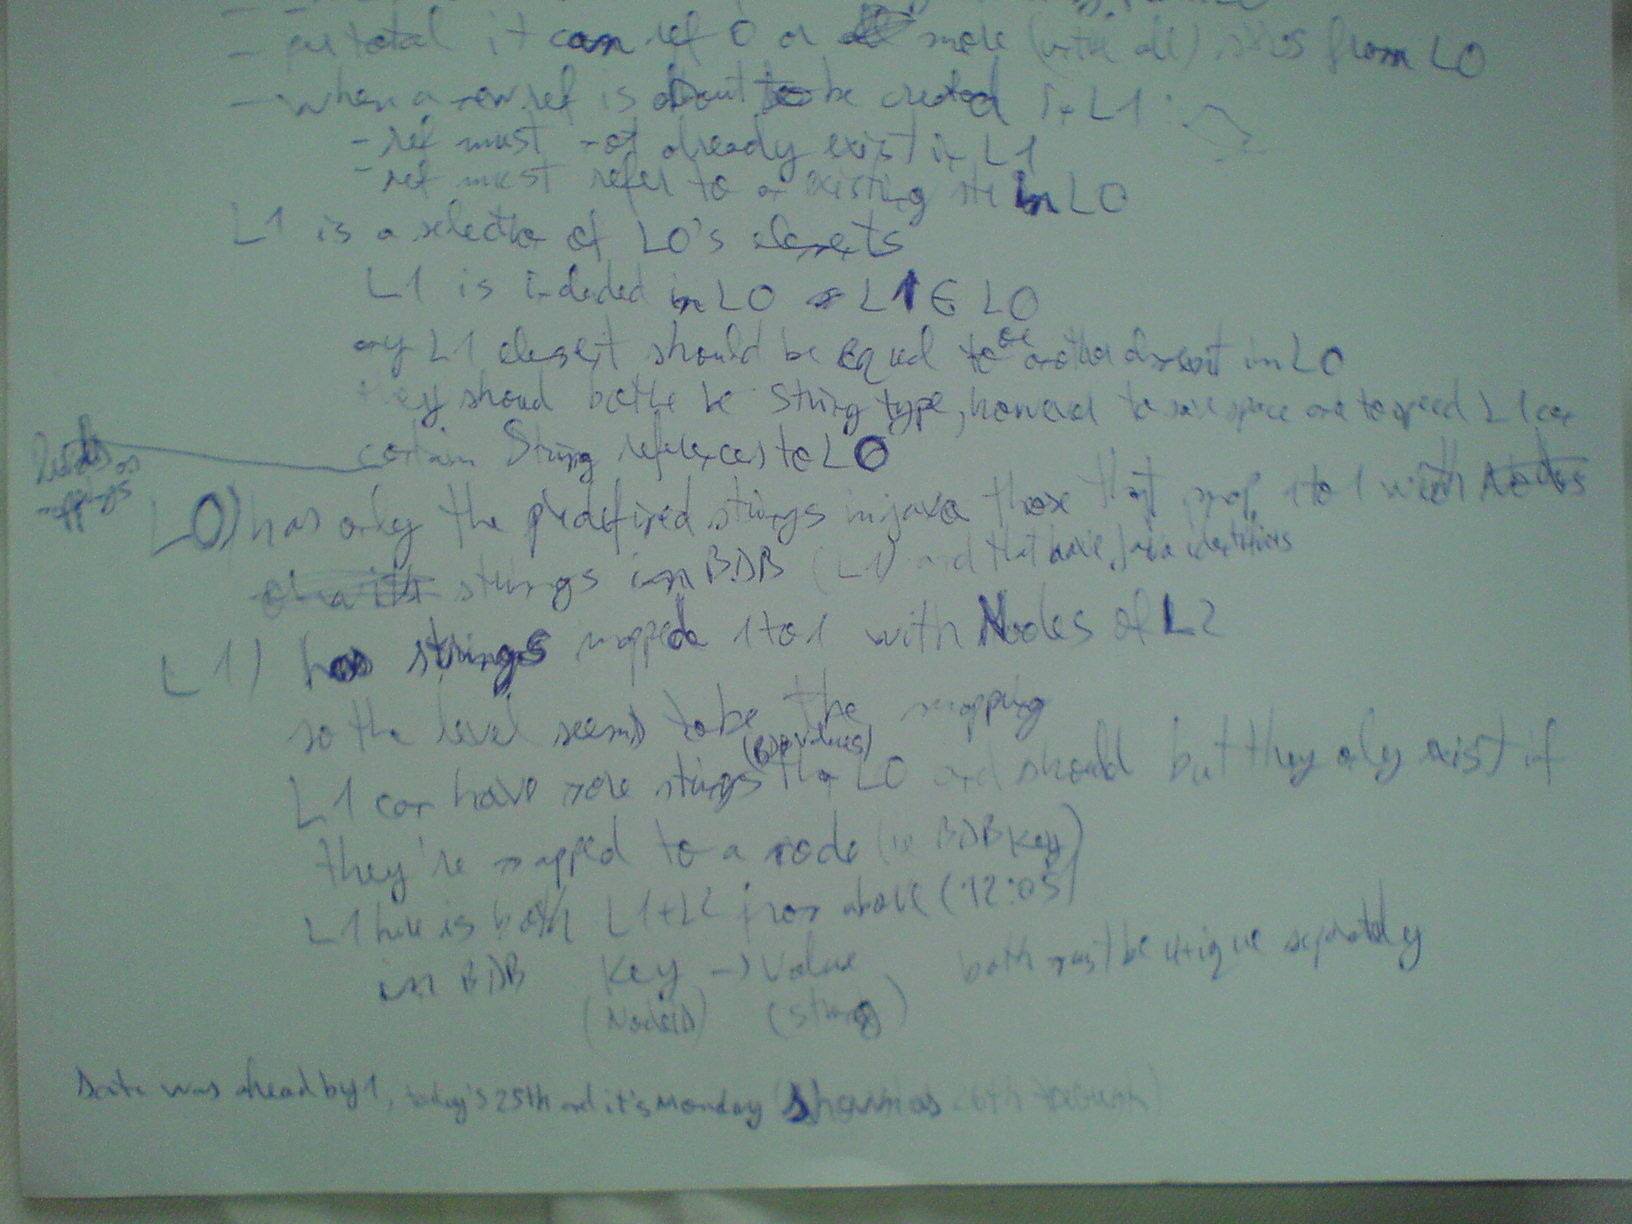 - per total it can ref 0 or more (with all) from L0
- when a new ref is about to be created in L1:
- ref must not already exist in L1
- ref must refer to an existing in L0
L1 is a selection of L0's elements
L1 is included in L0 L1 ∈ L0
any L1 element should be equal to one another element in L0
they should bothe be String type, however to save space and to speed L1 can
contain String references to L0
L0) has only the predefined strings in java those that map 1 to 1 with Nodes
strings in BDB (L1) and that have java identifiers
L1) has strings mapped 1 to 1 with Nodes of L2
so the level seems to be the mapping
(BDB values)
L1 can have more strings than L0 and should but they only exist if
they're mapped to a node (ie BDB key)
L1 here is both L1+L2 from above (12:05)
in BDB Key → Value both must be unique separately
(NodeID) (String)
Date was ahead by 1, today's 25th and it's Monday (shown as 26th